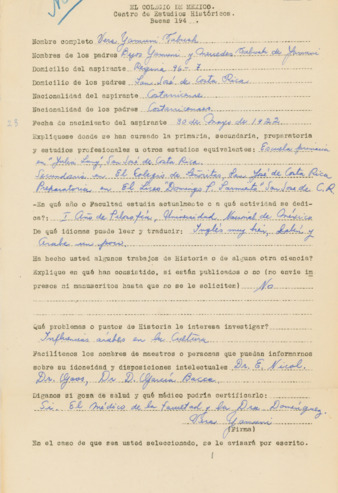 No
EL COLEGIO DE MEXICO.
Centro de Estudios Históricos.
Becas 194
Nombre completo Vera Yamuni Tabush
Nombres de los padres Yamuni y Mercedes Tabush de Yamuni
Domicilio del aspirante Página 96-7
Domicilio de los padres San José de Costa Rica
Nacionalidad del aspirante Costarricense
Nacionalidad de los padres Costarricenses
Fecha de nacimiento del aspirante 30 de Mayo de 1922
Explíquese donde se han cursado la primaria, secundaria, preparatoria
y estudios profesionales u otros estudios equivalentes: Escuela primaria
en San José de Costa Rica.
Secundaria en El Colegio de Señoritas, San José de Costa Rica
Preparatoria en El Liceo "Domingo F. Sarmiento" San José de C.R
-En qué año o Facultad estudia actualmente o a qué actividad se dedica?:
I Año de Filosofía, Universidad Nacional de México
De qué idiomas puede leer y traducir: Inglés muy bien, latín y
árabe un poco.
Ha hecho usted algunos trabajos de Historia o de alguna otra ciencia?
Explique en qué han consistido, si están publicados o no (no envíe
impresos ni manuscritos hasta que no se le soliciten) No
Qué problemas o puntos de Historia le interesa investigar?
Influencias árabes en la Cultura
Facilítenos los nombres de maestros o personas que puedan informarnos
sobre su idoneidad y disposiciones intelectuales Dr. E. Nicol.
Dr. Gaos, Dr. D. García Bacca
Díganos si goza de salud y qué médico podría certificarlo:
Si. El Médico de la Facultad y la Dra. Domínguez.
Vera Yamuni
(Firma)
En el caso de que sea usted seleccionado, se le avisará por escrito.